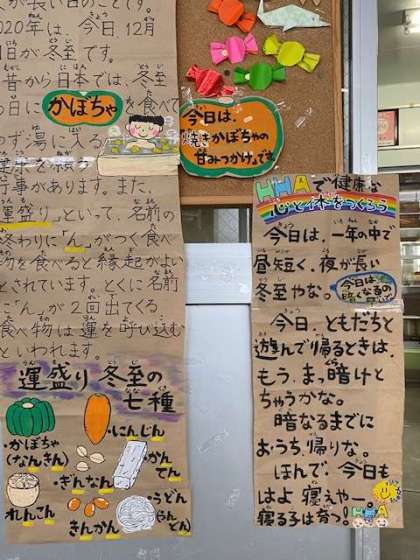 が長い日のことです。
2020年は、今日12月
日が冬至です。
昔から日本では、冬至
の日に
かぼちゃ
を食べて
ゆず湯に入る
健康を願う
行事があります。また、
運盛り」といって、名前の
終わりに「ん」がつく食べ
物を食べると縁起がよい
とされています。とくに名前
に「ん」が2回出てくる
食べ物は運を呼び込む
といわれます。
運盛り 冬至の
七種
・かぼちゃ
(なんきん)
・にんじん
・れんこん
・ぎんなん
・かん
てん
・きんかん
・うどん
(うんどん)
今日は、
焼きかぼちゃの
甘みつかけです。
HHAで健康な
心と体をつくろう
今日は、一年の中で
昼短く、夜が長い
冬至やな。
今日は
暗くなるの
今日、ともだちと
遊んで帰るときは、
もう、まっ暗けと
ちゃうかな。
暗なるまでに
おうち帰りな。
ほんで、今日も
はよ 寝えやー。
寝る子は育つ!
HHA